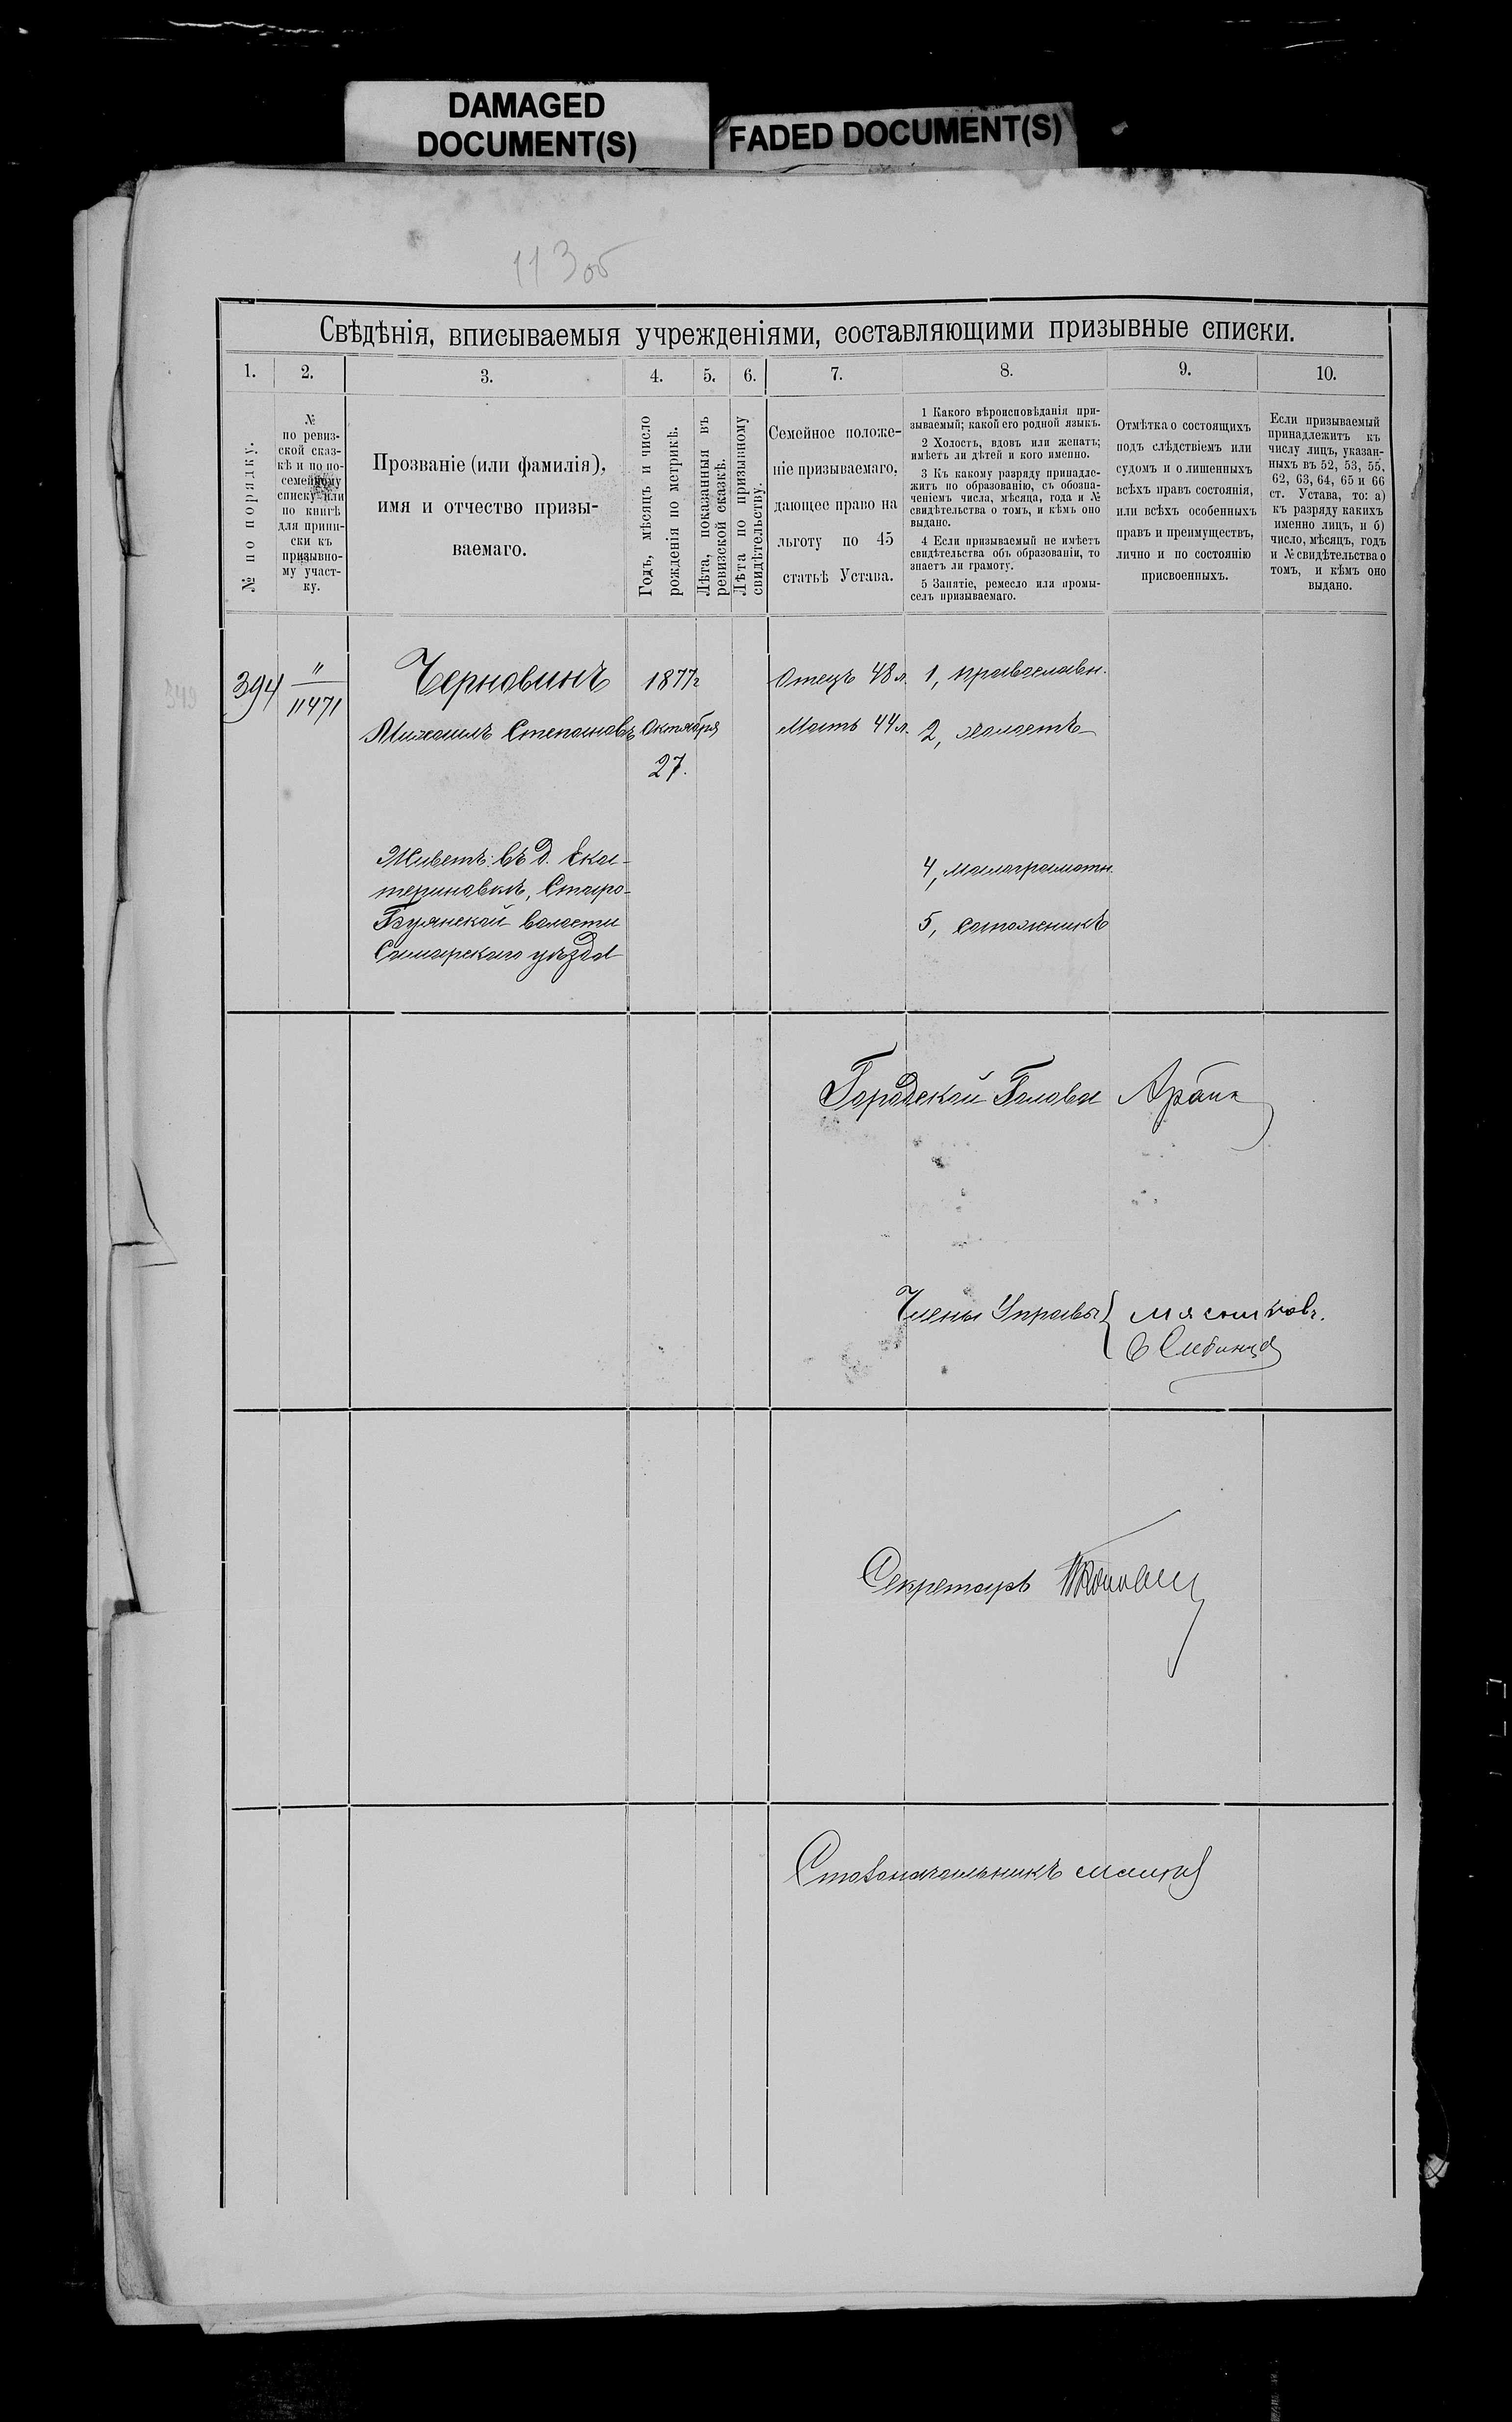 DAMAGED
DOCUMENT(S)
FADED DOCUMENT(S)
113об
Свѣдѣнія, вписываемыя учрежденіями, составляющими призывные списки.
1.
2.
3.
4.
5.
6.
7.
8.
9.
10.
№ по порядку.
№
по ревиз-
ской сказ-
кѣ и по по-
семейному
списку или
по книгѣ
для припи-
ски къ
призывно-
му участ-
ку.
Прозваніе (или фамилія),
имя и отчество призы-
ваемаго.
Годъ, мѣсяцъ и число
рожденія по метрикѣ.
Лѣта, показанныя въ
ревизской сказкѣ.
Лѣта по призывному
свидѣтельству.
Семейное положе-
ніе призываемаго,
дающее право на
льготу по 45
статьѣ Устава.
1 Какого вѣроисповѣданія при-
зываемый; какой его родной языкъ.
2 Холостъ, вдовъ или женатъ;
имѣетъ ли дѣтей и кого именно.
3 Къ какому разряду принадле-
житъ по образованію, съ обозна-
ченіемъ числа, мѣсяца, года и №
свидѣтельства о томъ, и кѣмъ оно
выдано.
4 Если призываемый не имѣетъ
свидѣтельства объ образованіи, то
знаетъ ли грамоту.
5 Занятіе, ремесло или промы-
селъ призываемаго.
Отмѣтка о состоящихъ
подъ слѣдствіемъ или
судомъ и о лишенныхъ
всѣхъ правъ состоянія,
или всѣхъ особенныхъ
правъ и преимуществъ,
лично и по состоянію
присвоенныхъ.
Если призываемый
принадлежитъ къ
числу лицъ, указан-
ныхъ въ 52, 53, 55,
62, 63, 64, 65 и 66
ст. Устава, то: а)
къ разряду какихъ
именно лицъ, и б)
число, мѣсяцъ, годъ
и № свидѣтельства о
томъ, и кѣмъ оно
выдано.
349
394
"
11471
Черновинъ
Михаилъ Степановъ
1877г
Октября
27.
Отецъ 48 л.
Мать 44 л.
1, православн.
2, холостъ
Живетъ: въ д. Ека-
териновкѣ, Старо-
Буянской волости
Самарскаго уѣзда
4, малограмотн.
5, сапожникъ
Городской Голова
Члены Управы
Мясниковъ.
Секретарь
Столоначальникъ